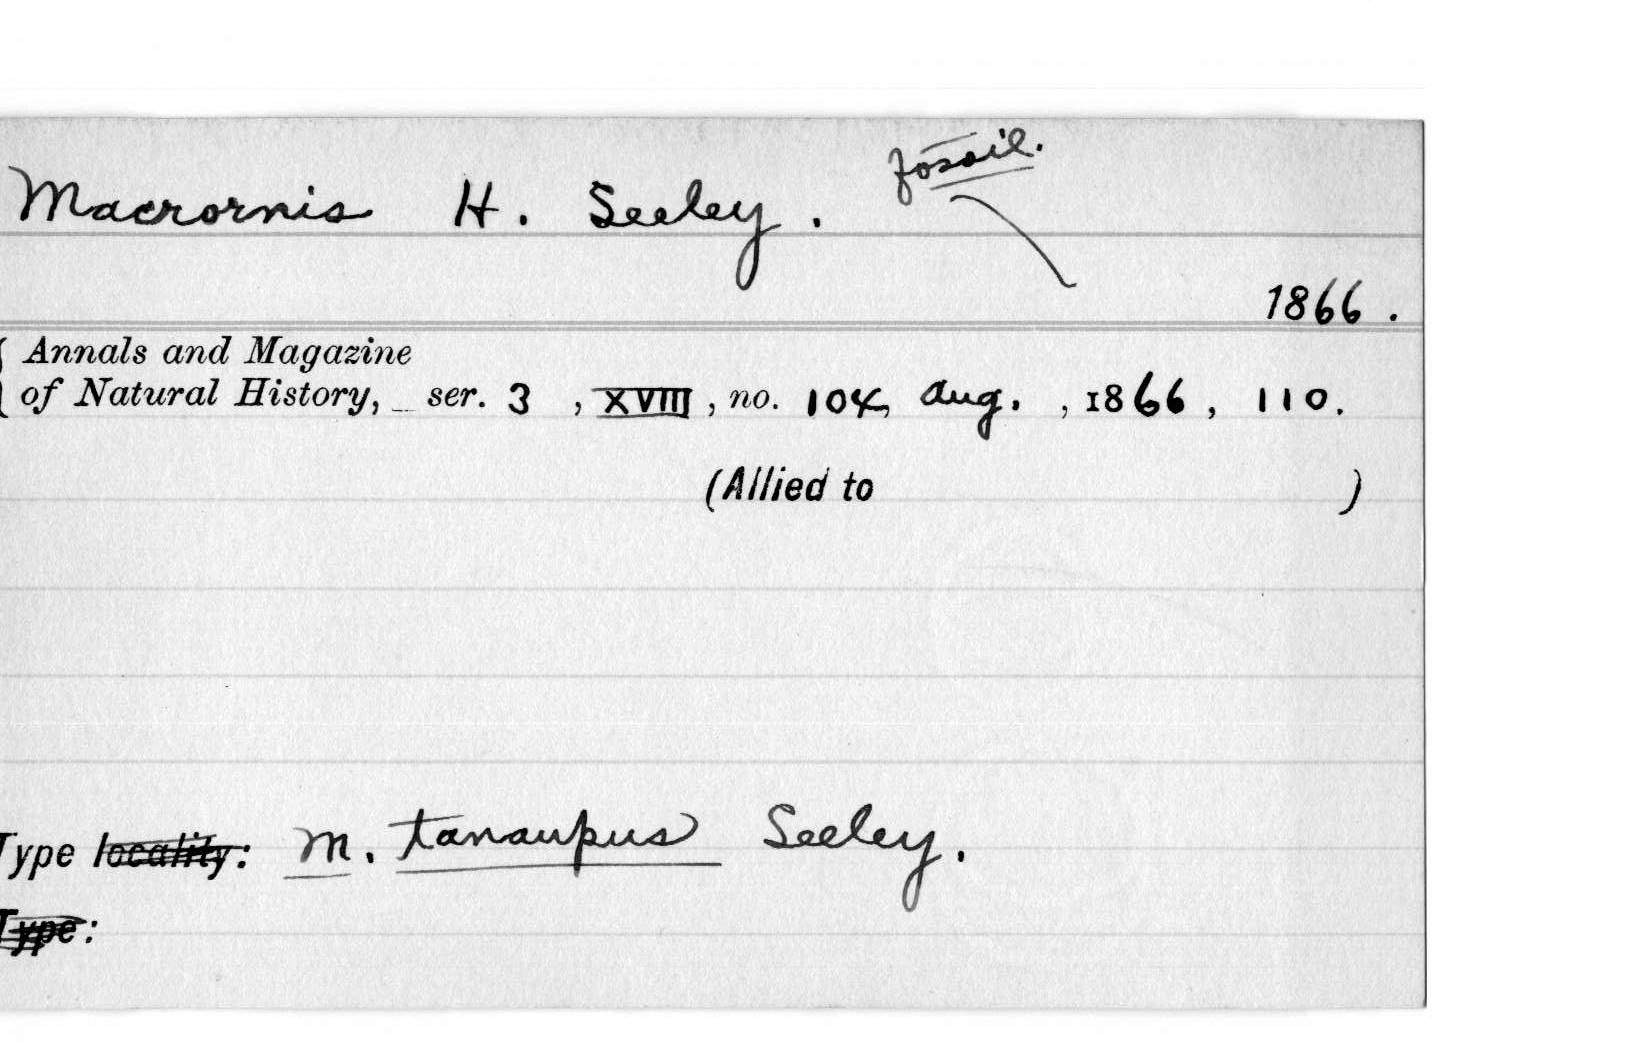 fossil.
Macrornis H. Seeley.
1866.
Annals and Magazine
of Natural History, _ ser. 3, XVIII, no. 104, Aug., 1866, 110.
(Allied to )
Type locality: M. tanaupus Seeley.
Type: